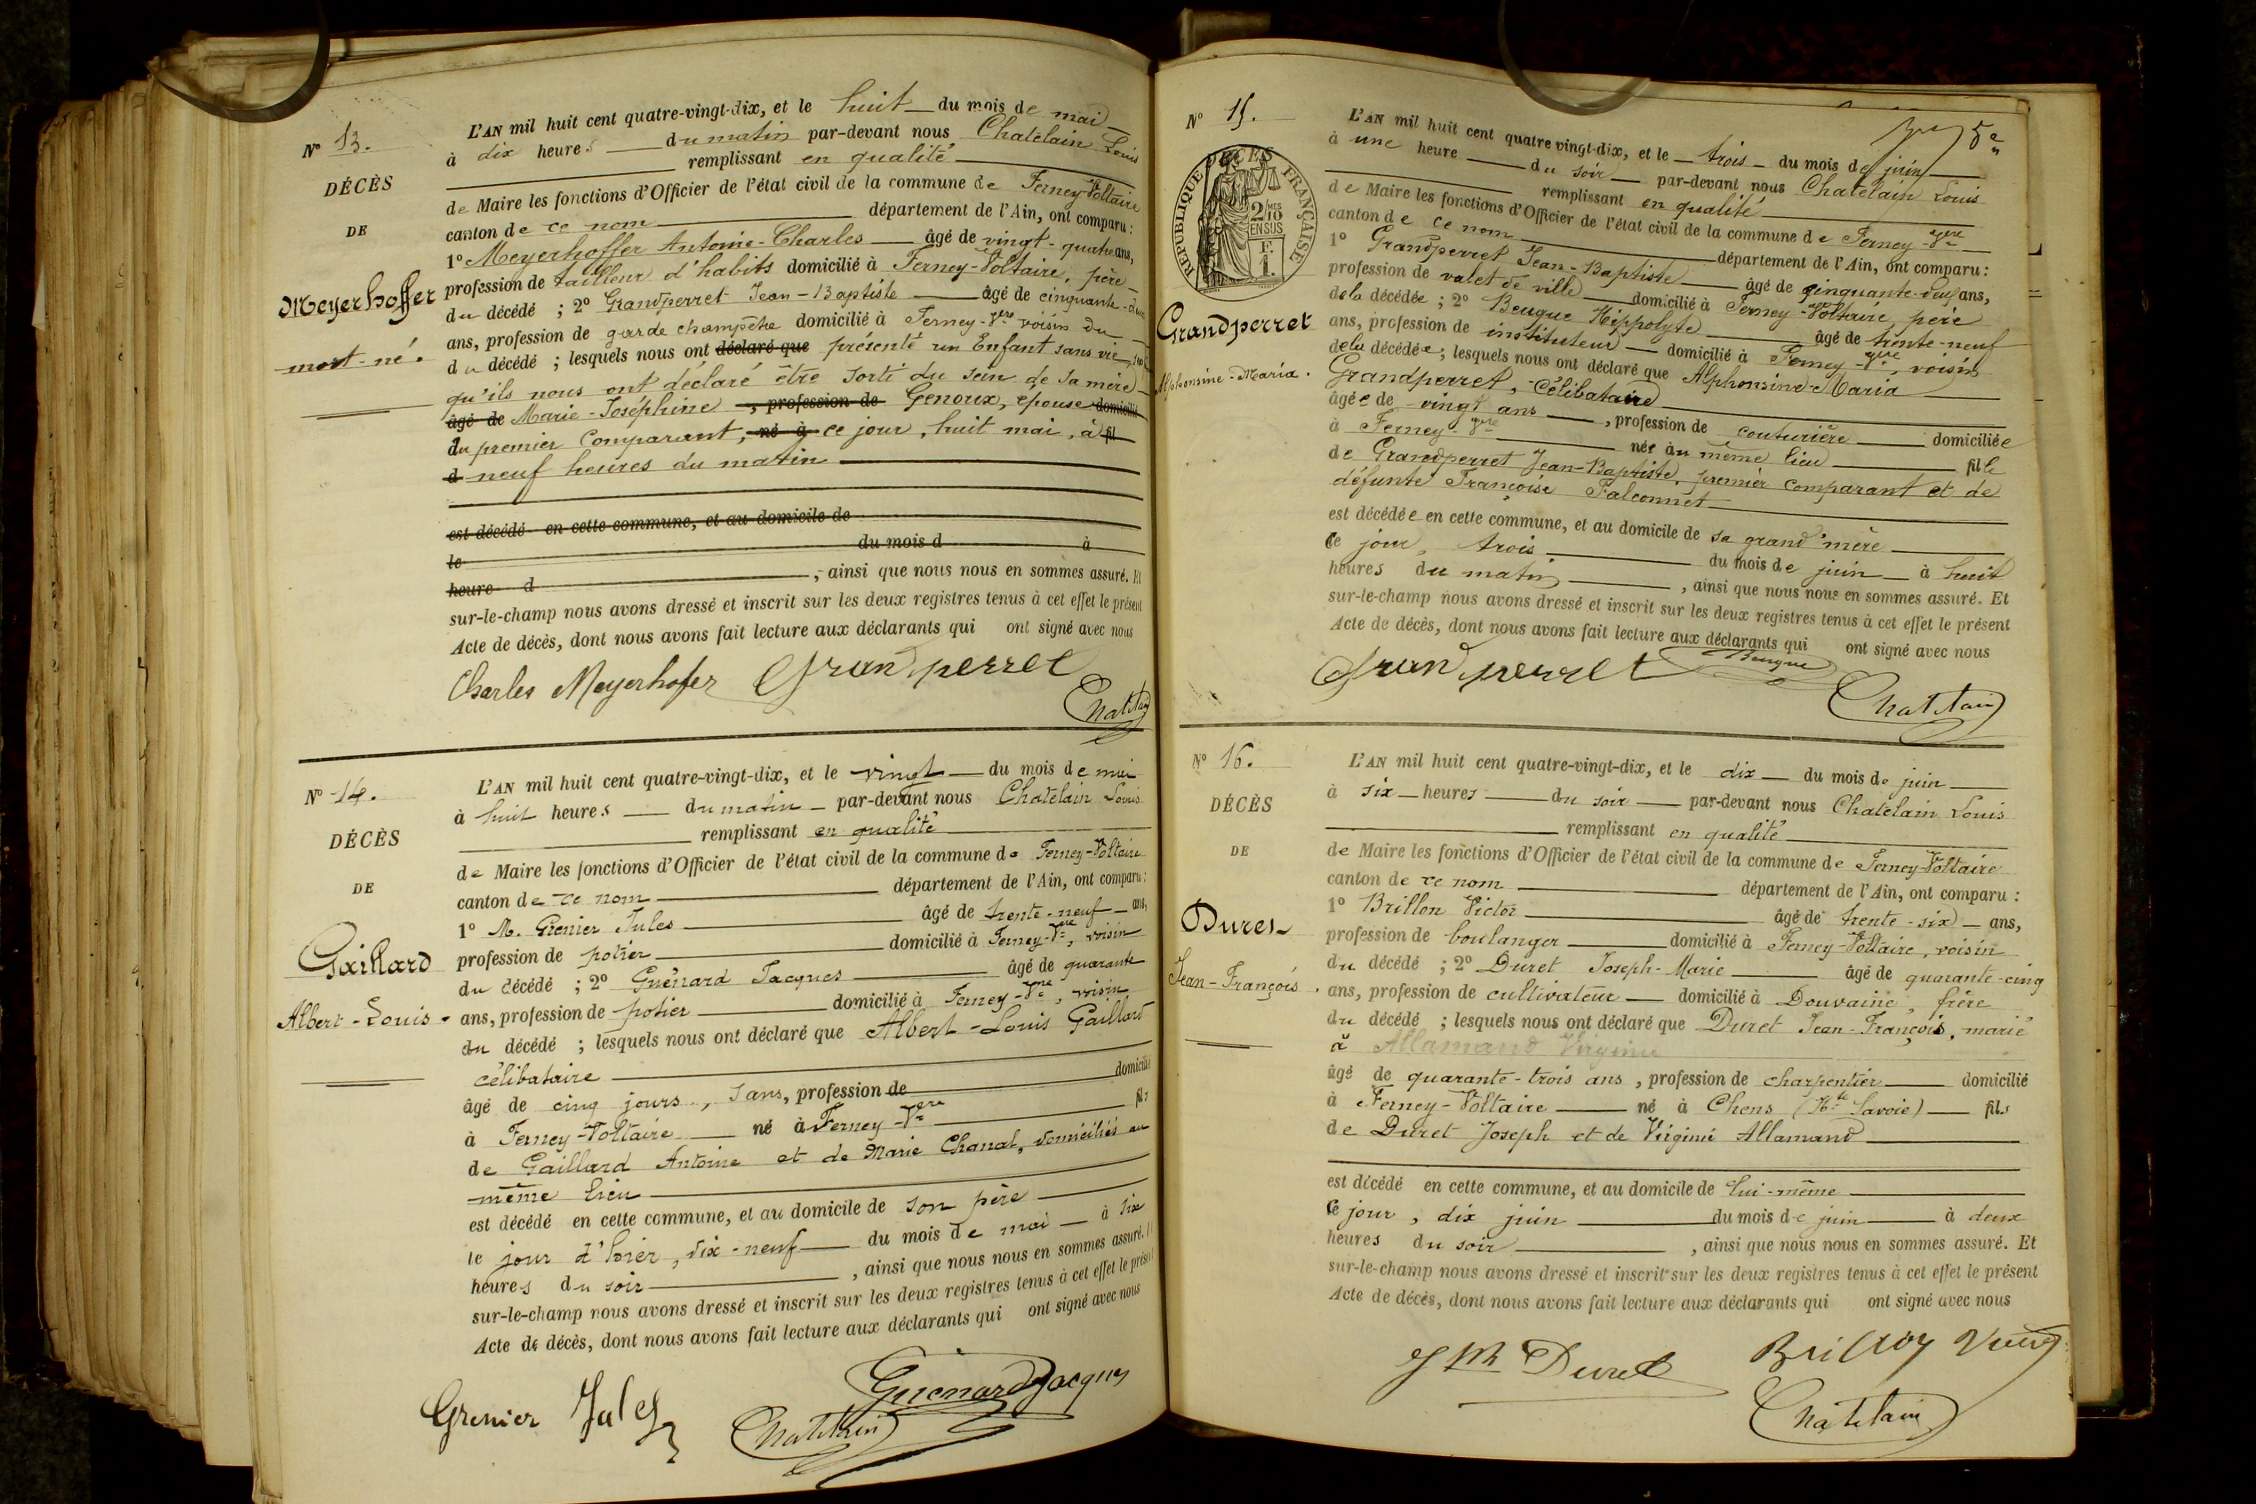 N° 13.
DÉCÈS
DE
Meyerhoffer
mort-né.
L'AN mil huit cent quatre-vingt-dix, et le huit du mois de mai
à dix heures du matin par-devant nous Chatelain Louis
remplissant en qualité
de Maire les fonctions d'Officier de l'état civil de la commune de Ferney-Voltaire
canton de ce nom département de l'Ain, ont comparu :
1° Meyerhoffer Antoine-Charles âgé de vingt-quatre ans,
profession de tailleur d'habits domicilié à Ferney-Voltaire, père
du décédé ; 2° Grandperret Jean-Baptiste âgé de cinquante-deux
ans, profession de garde champêtre domicilié à Ferney-Vre voisin du
du décédé ; lesquels nous ont déclaré que présenté un Enfant sans vie,
qu'ils nous ont déclaré être sorti du sein de sa mère
âgé de Marie-Joséphine , profession de Genoux, épouse domicilié
du premier comparant, né à ce jour, huit mai, à fil
d neuf heures du matin
est décédé en cette commune, et au domicile de
le du mois d à
heure d , ainsi que nous nous en sommes assuré. Et
sur-le-champ nous avons dressé et inscrit sur les deux registres tenus à cet effet le présent
Acte de décès, dont nous avons fait lecture aux déclarants qui ont signé avec nous
Charles Meyerhofer Grandperret
Chatelain
N° 14.
DÉCÈS
DE
Gaillard
Albert-Louis
L'AN mil huit cent quatre-vingt-dix, et le vingt du mois de mai
à huit heures du matin par-devant nous Chatelain Louis
remplissant en qualité
de Maire les fonctions d'Officier de l'état civil de la commune de Ferney-Voltaire
canton de ce nom département de l'Ain, ont comparu :
1° M. Grenier Jules âgé de trente-neuf ans,
profession de potier domicilié à Ferney-Vre, voisin
du décédé ; 2° Guénard Jacques âgé de quarante
ans, profession de potier domicilié à Ferney-Vre, voisin
du décédé ; lesquels nous ont déclaré que Albert-Louis Gaillard
célibataire
âgé de cinq jours, sans, profession de domicilié
à Ferney-Voltaire né à Ferney-Vre fils
de Gaillard Antoine et de Marie Chanal, domiciliés au
même lieu
est décédé en cette commune, et au domicile de son père
le jour d'hier, dix-neuf du mois de mai à six
heures du soir , ainsi que nous nous en sommes assuré. Et
sur-le-champ nous avons dressé et inscrit sur les deux registres tenus à cet effet le présent
Acte de décès, dont nous avons fait lecture aux déclarants qui ont signé avec nous
Grenier Jules Guenard Jacques
Chatelain
5e
N° 15.
DÉCÈS
RÉPUBLIQUE FRANÇAISE
2/10 MES
EN SUS
F.
1.
Grandperret
Alphonsine-Maria.
L'AN mil huit cent quatre vingt-dix, et le trois du mois de juin
à une heure du soir par-devant nous Chatelain Louis
remplissant en qualité
de Maire les fonctions d'Officier de l'état civil de la commune de Ferney-Vre
canton de ce nom département de l'Ain, ont comparu :
1° Grandperret Jean-Baptiste âgé de cinquante-deux ans,
profession de valet de ville domicilié à Ferney-Voltaire père
de la décédée ; 2° Beugue Hippolyte âgé de trente-neuf
ans, profession de instituteur domicilié à Ferney-Vre, voisin
de la décédée ; lesquels nous ont déclaré que Alphonsine-Maria
Grandperret, célibataire
âgée de vingt ans , profession de couturière domiciliée
à Ferney-Vre née au même lieu fille
de Grandperret Jean-Baptiste, premier comparant et de
défunte Françoise Falconnet
est décédée en cette commune, et au domicile de sa grand'mère
Ce jour, trois du mois de juin à huit
heures du matin , ainsi que nous nous en sommes assuré. Et
sur-le-champ nous avons dressé et inscrit sur les deux registres tenus à cet effet le présent
Acte de décès, dont nous avons fait lecture aux déclarants qui ont signé avec nous
Grandperret Beugue
Chatelain
N° 16.
DÉCÈS
DE
Duret
Jean-François.
L'AN mil huit cent quatre-vingt-dix, et le dix du mois de juin
à six heures du soir par-devant nous Chatelain Louis
remplissant en qualité
de Maire les fonctions d'Officier de l'état civil de la commune de Ferney-Voltaire
canton de ce nom département de l'Ain, ont comparu :
1° Brillon Victor âgé de trente-six ans,
profession de boulanger domicilié à Ferney-Voltaire, voisin
du décédé ; 2° Duret Joseph-Marie âgé de quarante-cinq
ans, profession de cultivateur domicilié à Douvaine, frère
du décédé ; lesquels nous ont déclaré que Duret Jean-François, marié
à Allamand Virginie
âgé de quarante-trois ans, profession de charpentier domicilié
à Ferney-Voltaire né à Chens (Hte Savoie) fils
de Duret Joseph et de Virginie Allamand
est décédé en cette commune, et au domicile de lui-même
Ce jour, dix juin du mois de juin à deux
heures du soir , ainsi que nous nous en sommes assuré. Et
sur-le-champ nous avons dressé et inscrit sur les deux registres tenus à cet effet le présent
Acte de décès, dont nous avons fait lecture aux déclarants qui ont signé avec nous
J M Duret Brillon Victor
Chatelain